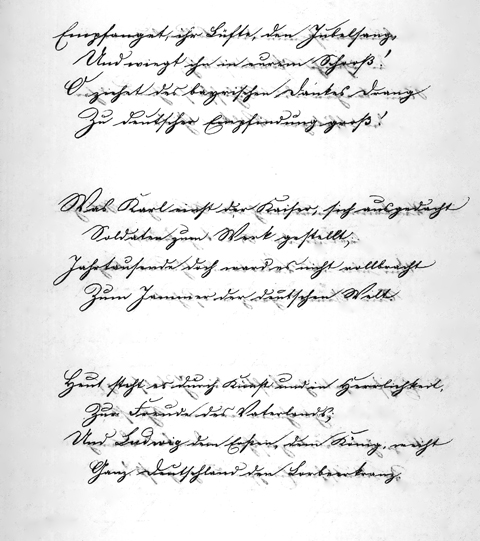 Empfanget, ihr Lüfte, den Jubelsang,
Und wiegt ihn in eurem Schooß!
O ziehet des bayrischen Dankes Drang
Zu deutscher Empfindung groß!
Was Karl einst der Kaiser, sich ausgedacht
Soldaten zum Werk gestellt,
Jahrtausende doch ward es nicht vollbracht
Zum Jammer der deutschen Welt.
Heut steht es durch Kunst und in Herrlichkeit,
Zur Freude des Vaterlands,
Und Ludwig dem Ersten, dem König, weiht
Ganz Deutschland den Lorbeerkranz.